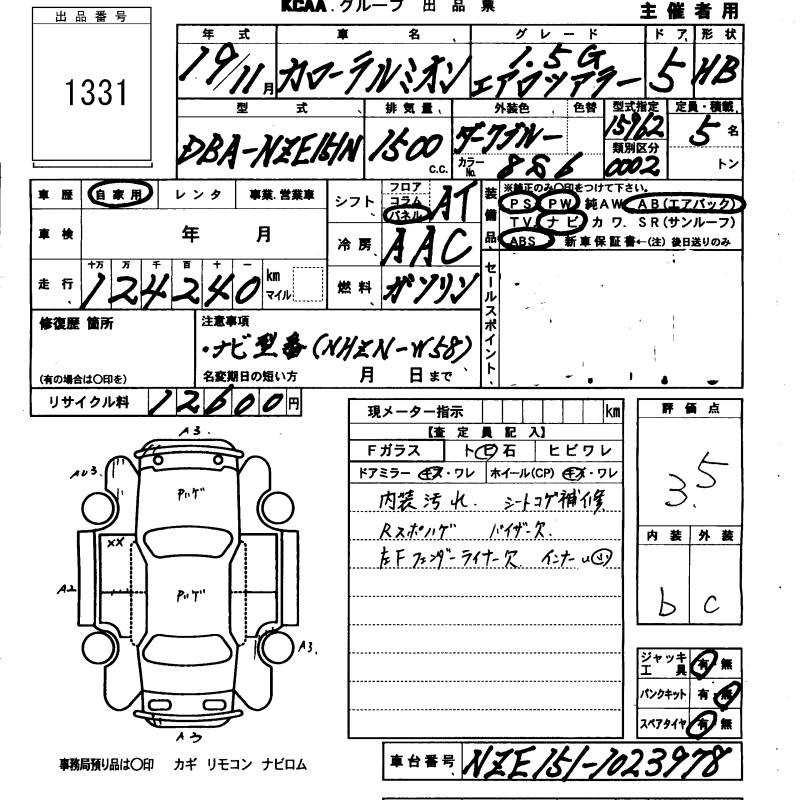 KCAA.グループ 出品票
主催者用
出品番号
1331
年式 車名 グレード ドア 形状
19/11月 カローラルミオン 1.5G エアロツアラー 5 HB
型式 排気量 外装色 色替 型式指定 定員・積載
DBA-NZE151N 1500 c.c. ダークブルー 15962 5名
カラーNo. 8S6 類別区分 0002 トン
車歴 自家用 レンタ 事業.営業車
シフト フロア コラム パネル AT
装備品 ※純正のみ〇印をつけて下さい。
PS PW 純AW AB(エアバック)
TV ナビ カワ SR(サンルーフ)
ABS 新車保証書←(注)後日送りのみ
車検 年 月
冷房 AAC
走行 十万 万 千 百 十 一
124240 km マイル
燃料 ガソリン
セールスポイント
修復歴 箇所
(有の場合は〇印を)
注意事項
・ナビ型番(NHZN-W58)
名変期日の短い方 月 日まで
リサイクル料 12600円
現メーター指示 km
【査定員記入】
Fガラス トビ石 ヒビワレ
ドアミラー キズ・ワレ ホイール(CP) キズ・ワレ
内装汚れ. シートコゲ補修
Rスポハゲ バイザー欠.
左Fフェンダーライナー欠. インナーU小
評価点
3.5
内装 外装
b c
A3.
AU3.
Pハゲ
XX
A2
Pハゲ
A3.
A3
ジャッキ工具 有・無
パンクキット 有・無
スペアタイヤ 有・無
事務局預り品は〇印 カギ リモコン ナビロム
車台番号 NZE151-1023978